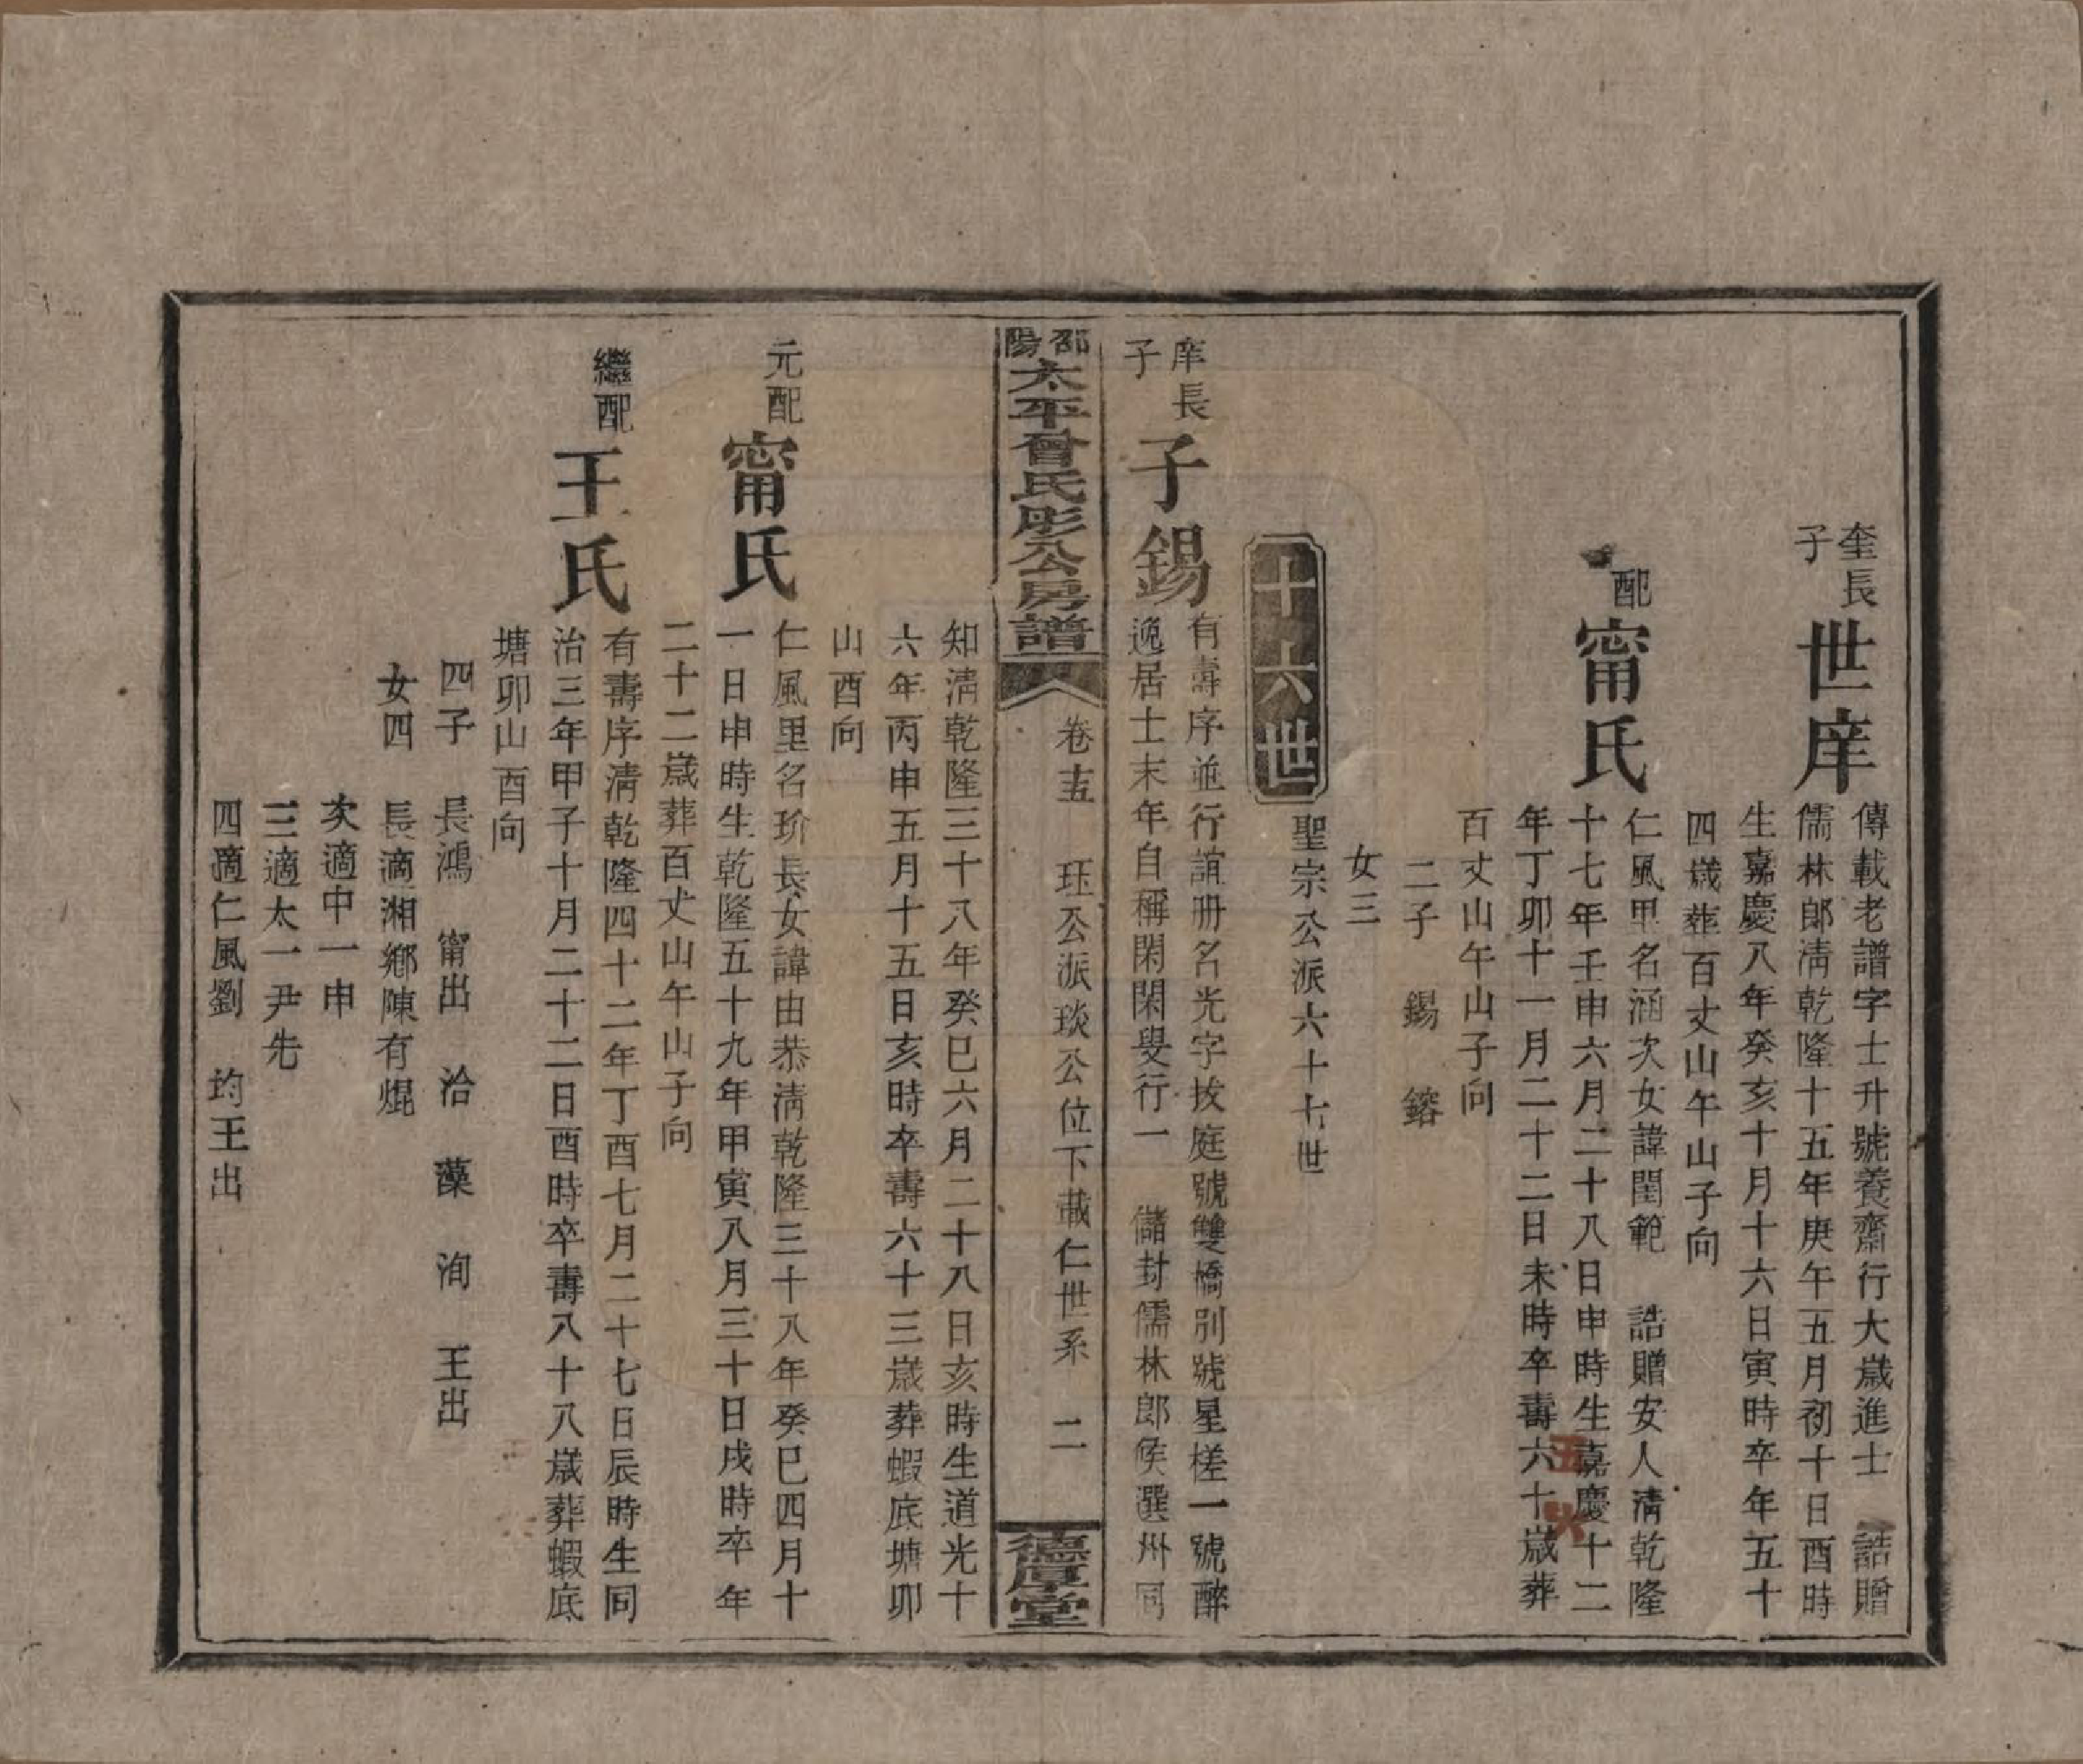 奎長子
世庠
傳載老譜字士升號養齋行大歲進士 誥贈
儒林郎清乾隆十五年庚午五月初十日酉時
生嘉慶八年癸亥十月十六日寅時卒年五十
四歲葬百丈山午山子向
配
甯氏
仁風里名涵次女諱閨範 誥贈安人清乾隆
十七年壬申六月二十八日申時生嘉慶十二
年丁卯十一月二十二日未時卒壽六十歲葬
百丈山午山子向
二子 錫 鎔
女三
十六世
聖宗公派六十七世
庠長子
子錫
有壽序並行誼冊名光字拔庭號雙橋別號星槎一號醉
逸居士末年自稱閑閑叟行一 儲封儒林郎候選州同
邵陽太平曾氏彤公房譜
卷五 珏公派琰公位下載仁世系 二
德厚堂
知清乾隆三十八年癸巳六月二十八日亥時生道光十
六年丙申五月十五日亥時卒壽六十三歲葬蝦底塘卯
山酉向
元配
甯氏
仁風里名玠長女諱由恭清乾隆三十八年癸巳四月十
一日申時生乾隆五十九年甲寅八月三十日戌時卒年
二十二歲葬百丈山午山子向
繼配
王氏
有壽序清乾隆四十二年丁酉七月二十七日辰時生同
治三年甲子十月二十二日酉時卒壽八十八歲葬蝦底
塘卯山酉向
四子 長鴻 甯出 洽 藻 洵 王出
女四 長適湘鄉陳有焜
次適中一申
三適太一尹先
四適仁風劉 均王出